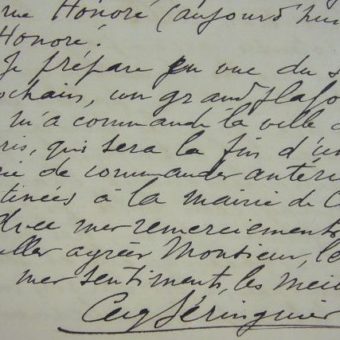 rue Honoré (aujourd'hui
Honoré.
Je prépare en vue du S
ochain, un grand plafo
m'a commandé la ville d
ris, qui sera la fin d'un
rie de commandes antéri
tinées à la mairie de C
Avec mes remerciements
uller agréer Monsieur, le
mes sentiments, les meil
Aug Séringuier